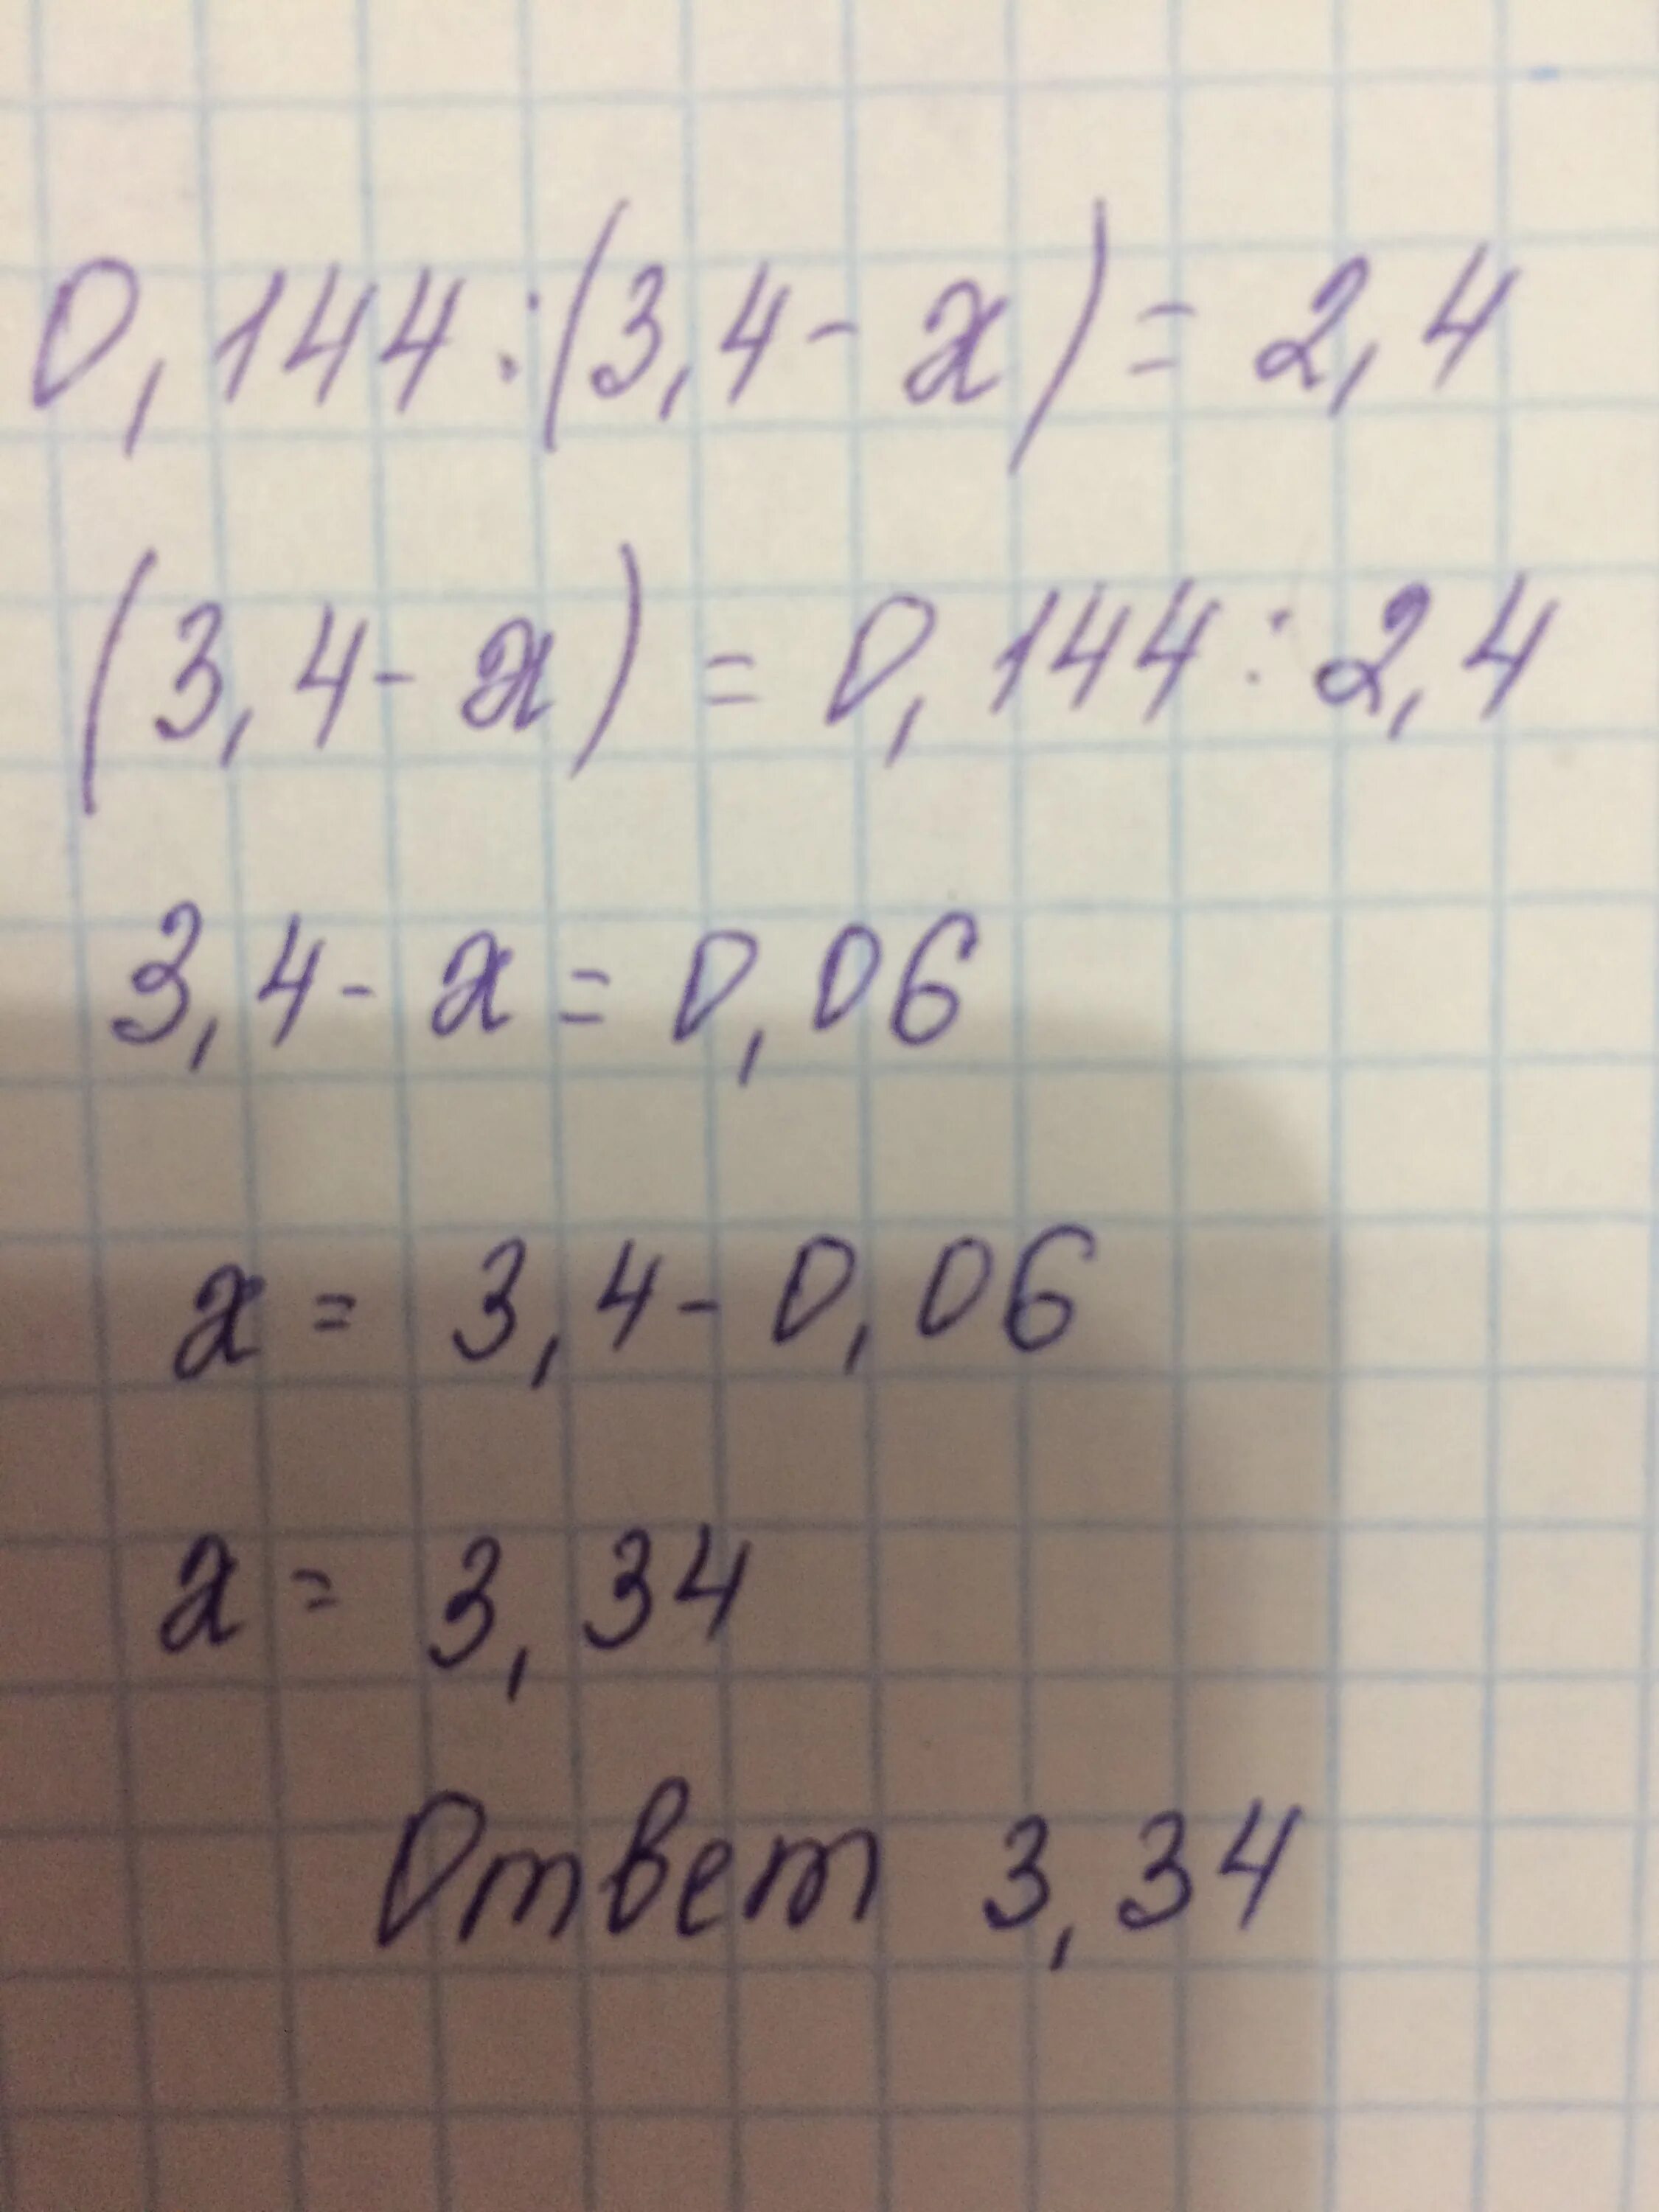 0,144:(3,4-x)=2,4
(3,4-x)=0,144:2,4
3,4-x=0,06
x=3,4-0,06
x=3,34
Ответ 3,34